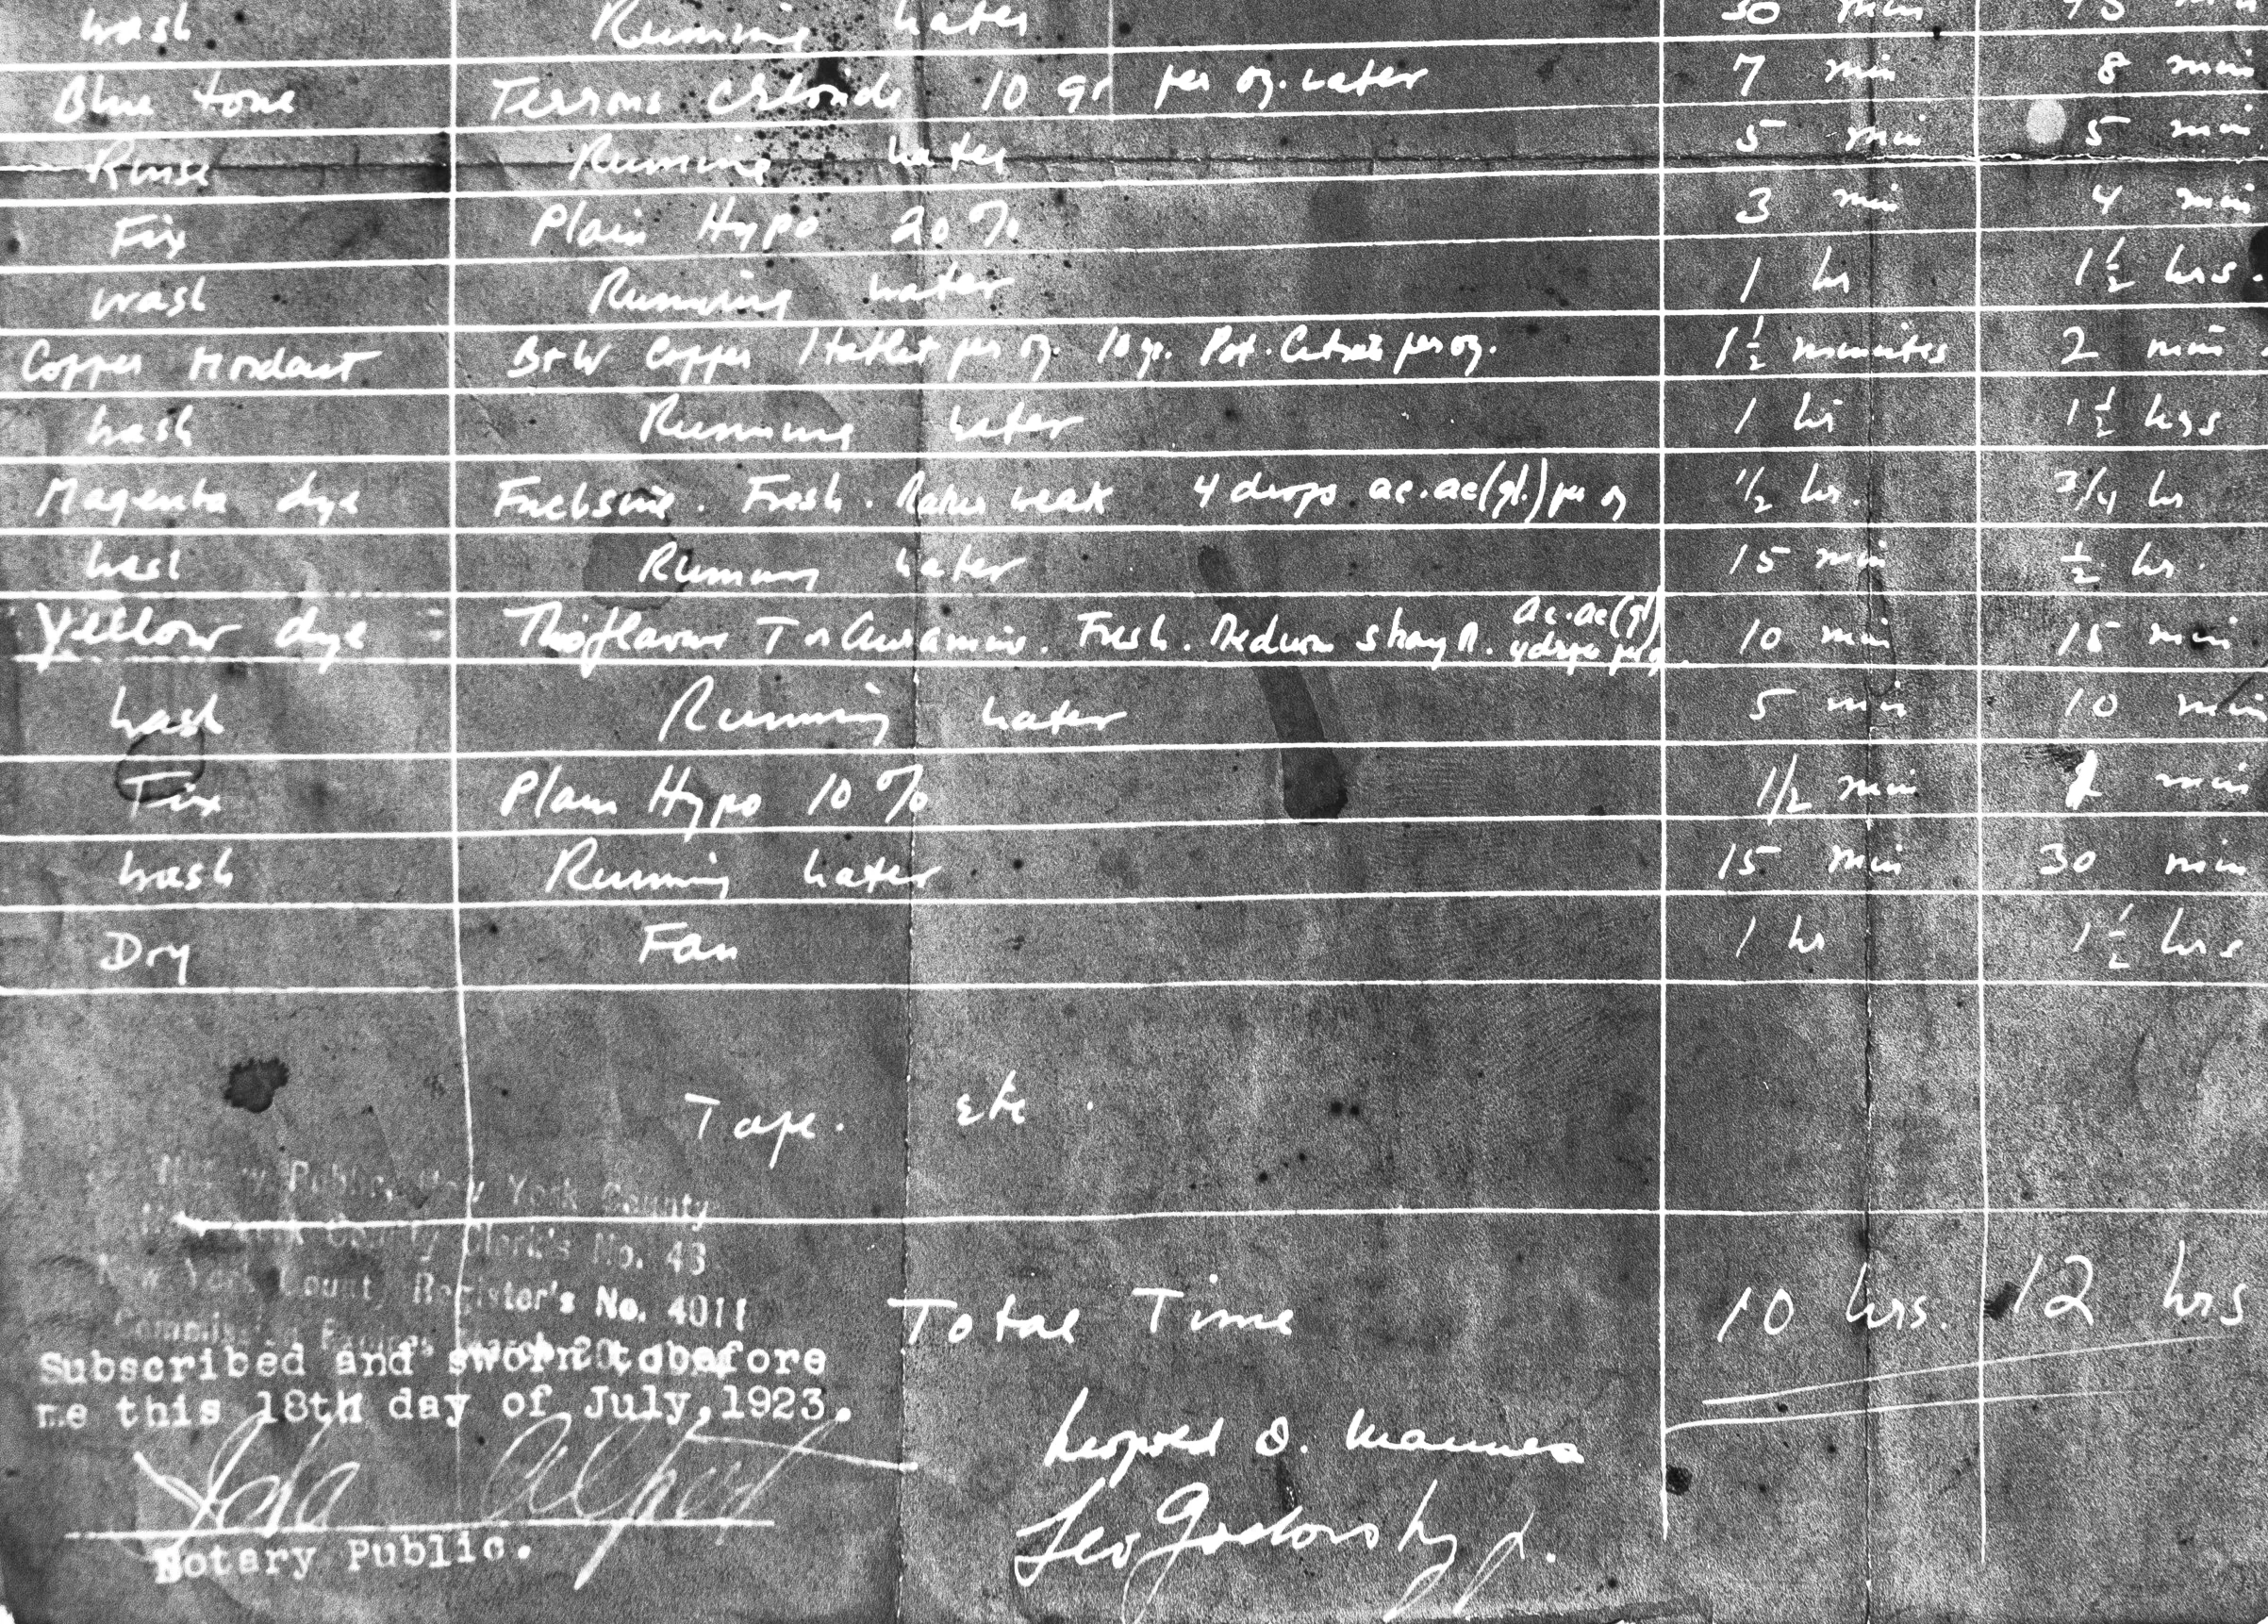 Wash Running Water 30 min 45 min
Blue tone Ferrous Chloride 10 gr per oz. water 7 min 8 min
Rinse Running Water 5 min 5 min
Fix Plain Hypo 20% 3 min 4 min
Wash Running Water 1 hr 1 1/2 hrs.
Copper Mordant B+W Copper 1 tablet per oz. 10 gr. Pot. Citrate per oz. 1 1/2 minutes 2 min
Wash Running Water 1 hr 1 1/2 hrs
Magenta dye Fuchsine. Fresh. Rather weak 4 drops ac. ac (gl.) per oz 1/2 hr. 3/4 hr
Wash Running Water 15 min 1/2 hr.
Yellow dye Thioflavine T or Auramine. Fresh. Medium strong. ac. ac (gl) 4 drops per oz. 10 min 15 min
Wash Running Water 5 min 10 min
Fix Plain Hypo 10% 1/2 min 1 min
Wash Running Water 15 min 30 min
Dry Fan 1 hr 1 1/2 hrs
Tape. etc.
Notary Public, New York County
New York County Clerk's No. 43
New York County Register's No. 4011
Commission Expires March 30
Total Time 10 hrs. 12 hrs
Subscribed and sworn to before
me this 18th day of July, 1923.
Leopold D. Mannes
Ida Alpert
Leo Godowsky Jr.
Notary Public.